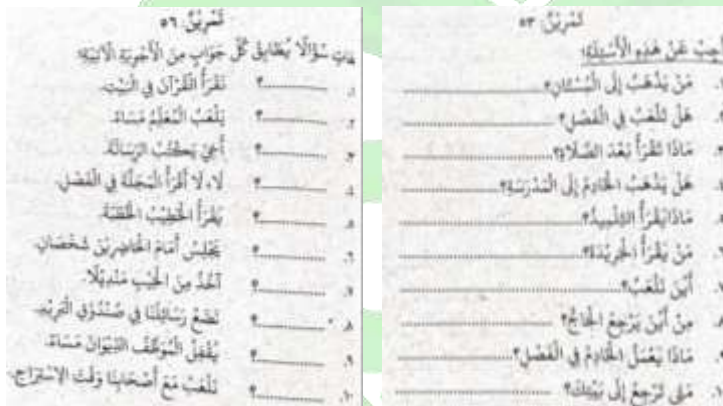 تَمْرِيْنٌ: ٥٣
أَجِبْ عَنْ هٰذِهِ الْأَسْئِلَةِ:
١. مَنْ يَذْهَبُ إِلَى الْبُسْتَانِ؟
٢. هَلْ تَلْعَبُ فِي الْفَصْلِ؟
٣. مَاذَا تَقْرَأُ بَعْدَ الصَّلَاةِ؟
٤. هَلْ يَذْهَبُ الْخَادِمُ إِلَى الْمَدْرَسَةِ؟
٥. مَاذَا يَقْرَأُ التِّلْمِيذُ؟
٦. مَنْ يَقْرَأُ الْجَرِيْدَةَ؟
٧. أَيْنَ تَلْعَبُ؟
٨. مِنْ أَيْنَ يَرْجِعُ الْحَاجُّ؟
٩. مَاذَا يَعْمَلُ الْخَادِمُ فِي الْفَصْلِ؟
١٠. مَتٰى تَرْجِعُ إِلَى بَيْتِكَ؟
تَمْرِيْنٌ: ٥٦
هَاتِ سُؤَالًا يُطَابِقُ كُلَّ جَوَابٍ مِنَ الْأَجْوِبَةِ الْآتِيَةِ:
١. ؟ نَقْرَأُ الْقُرْآنَ فِي الْبَيْتِ.
٢. ؟ يَلْعَبُ الْمُعَلِّمُ مَسَاءً.
٣. ؟ أَخِيْ يَكْتُبُ الرِّسَالَةَ.
٤. ؟ لَا، لَا أَقْرَأُ الْمَجَلَّةَ فِي الْفَصْلِ.
٥. ؟ يَقْرَأُ الْخَطِيْبُ الْخُطْبَةَ.
٦. ؟ يَجْلِسُ أَمَامَ الْحَاضِرِيْنَ شَخْصَانِ.
٧. ؟ آخُذُ مِنَ الْجَيْبِ مَنْدِيْلًا.
٨. ؟ نَضَعُ رَسَائِلَنَا فِي صُنْدُوْقِ الْبَرِيْدِ.
٩. ؟ يُقْفِلُ الْمُوَظَّفُ الدِّيْوَانَ مَسَاءً.
١٠. ؟ نَلْعَبُ مَعَ أَصْحَابِنَا وَقْتَ الْاِسْتِرَاحِ.